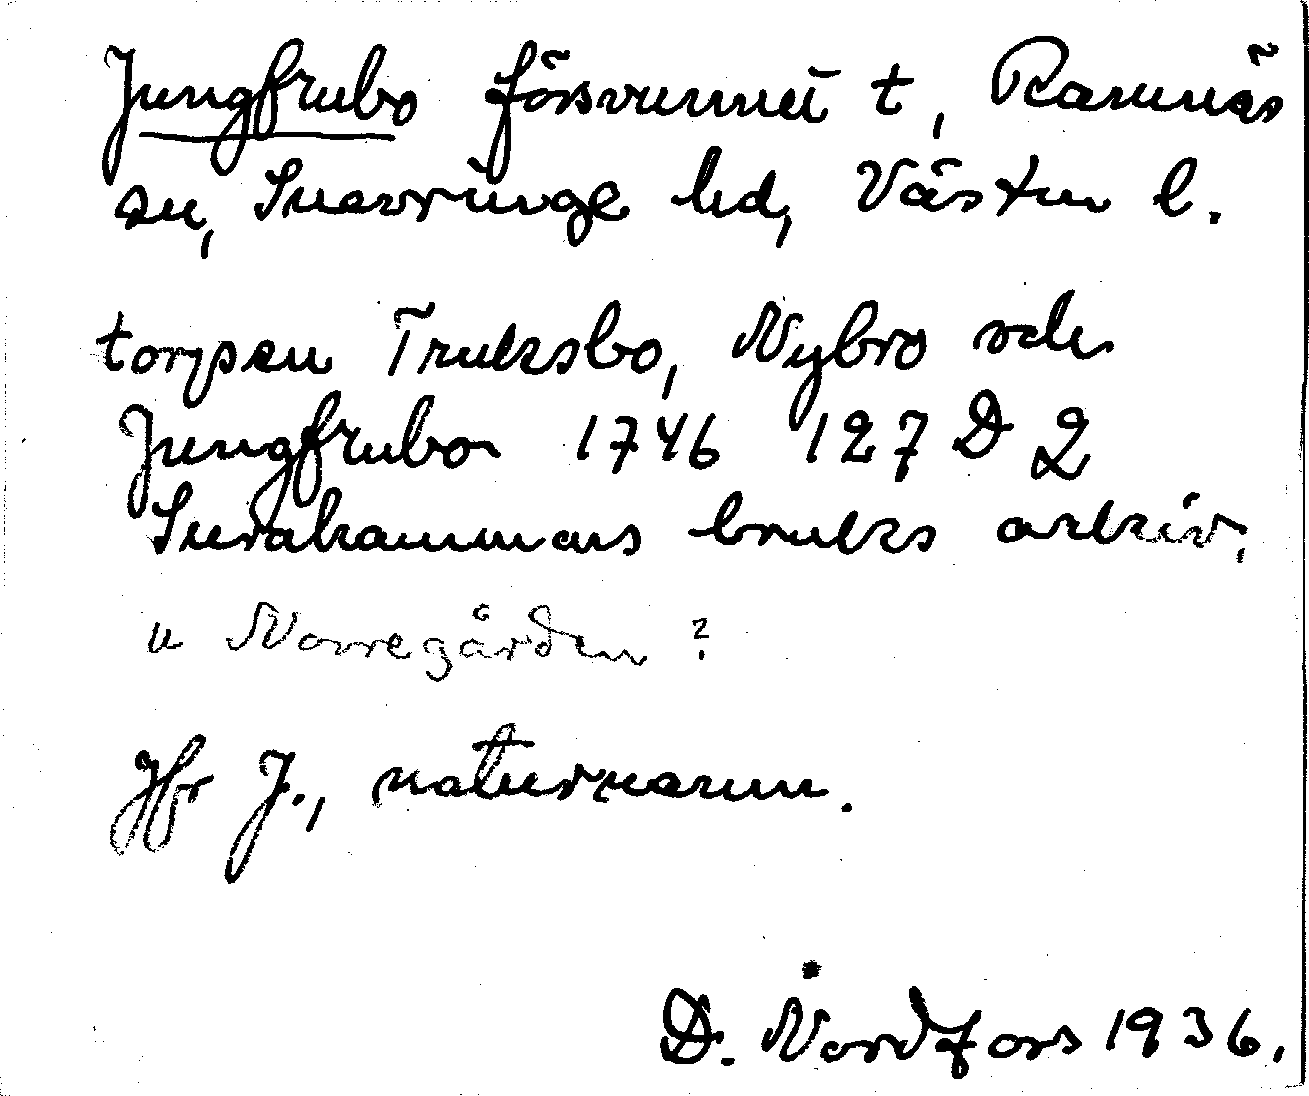 Jungfrubo försvunnet t, Ramnäs
sn, Snevringe hd, Västm l.
torpen Truksbo, Nybro och
Jungfrubo 1746 127 D 2
Surahammars bruks arkiv.
u Norregården ?
Jfr J., naturnamn.
D. Nordfors 1936.